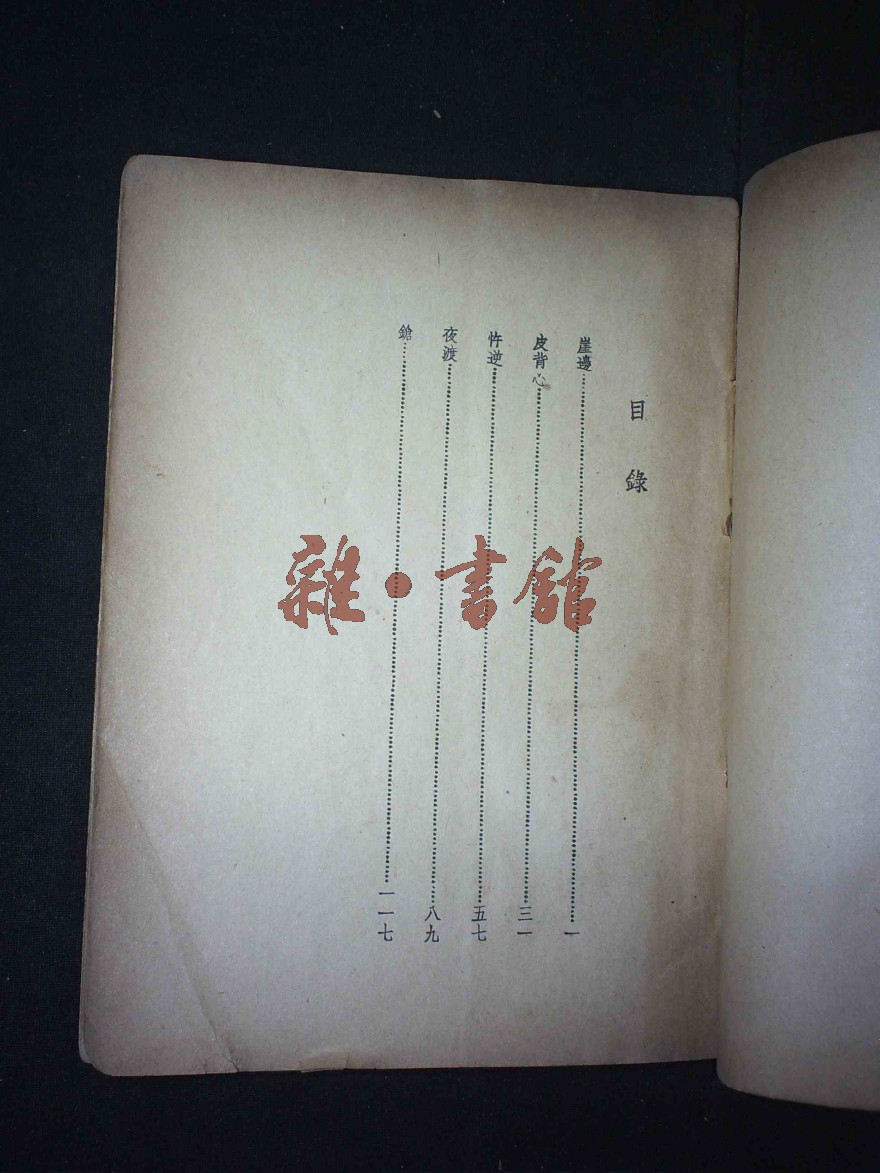 目錄
崖邊……一
皮背心……三一
忤逆……五七
夜渡……八九
鎗……一一七
雜·書館